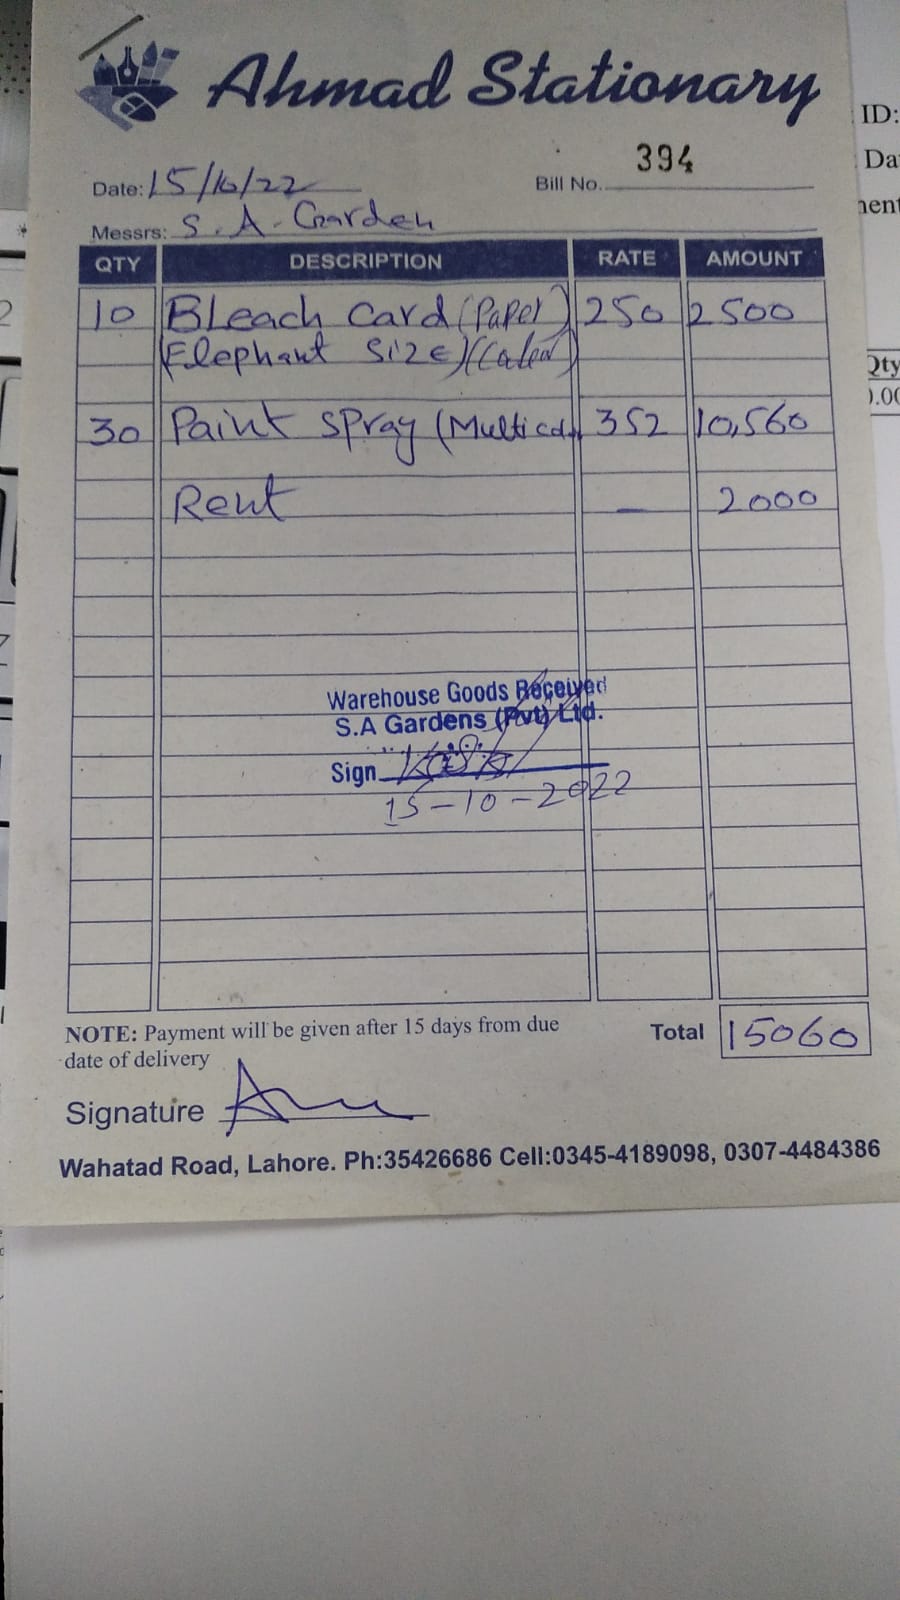 Ahmad Stationary
ID:
Date: 15/10/22 Bill No. 394
Da
Messrs: S. A. Garden
QTY DESCRIPTION RATE AMOUNT
10 Bleach Card (Paper) 250 2500
(Elephant Size)
Qty
30 Paint Spray (Multi 352 10,560
Rent — 2000
Warehouse Goods Received
S.A Gardens (Pvt) Ltd.
Sign
15-10-2022
NOTE: Payment will be given after 15 days from due
date of delivery
Total 15060
Signature
Wahatad Road, Lahore. Ph:35426686 Cell:0345-4189098, 0307-4484386